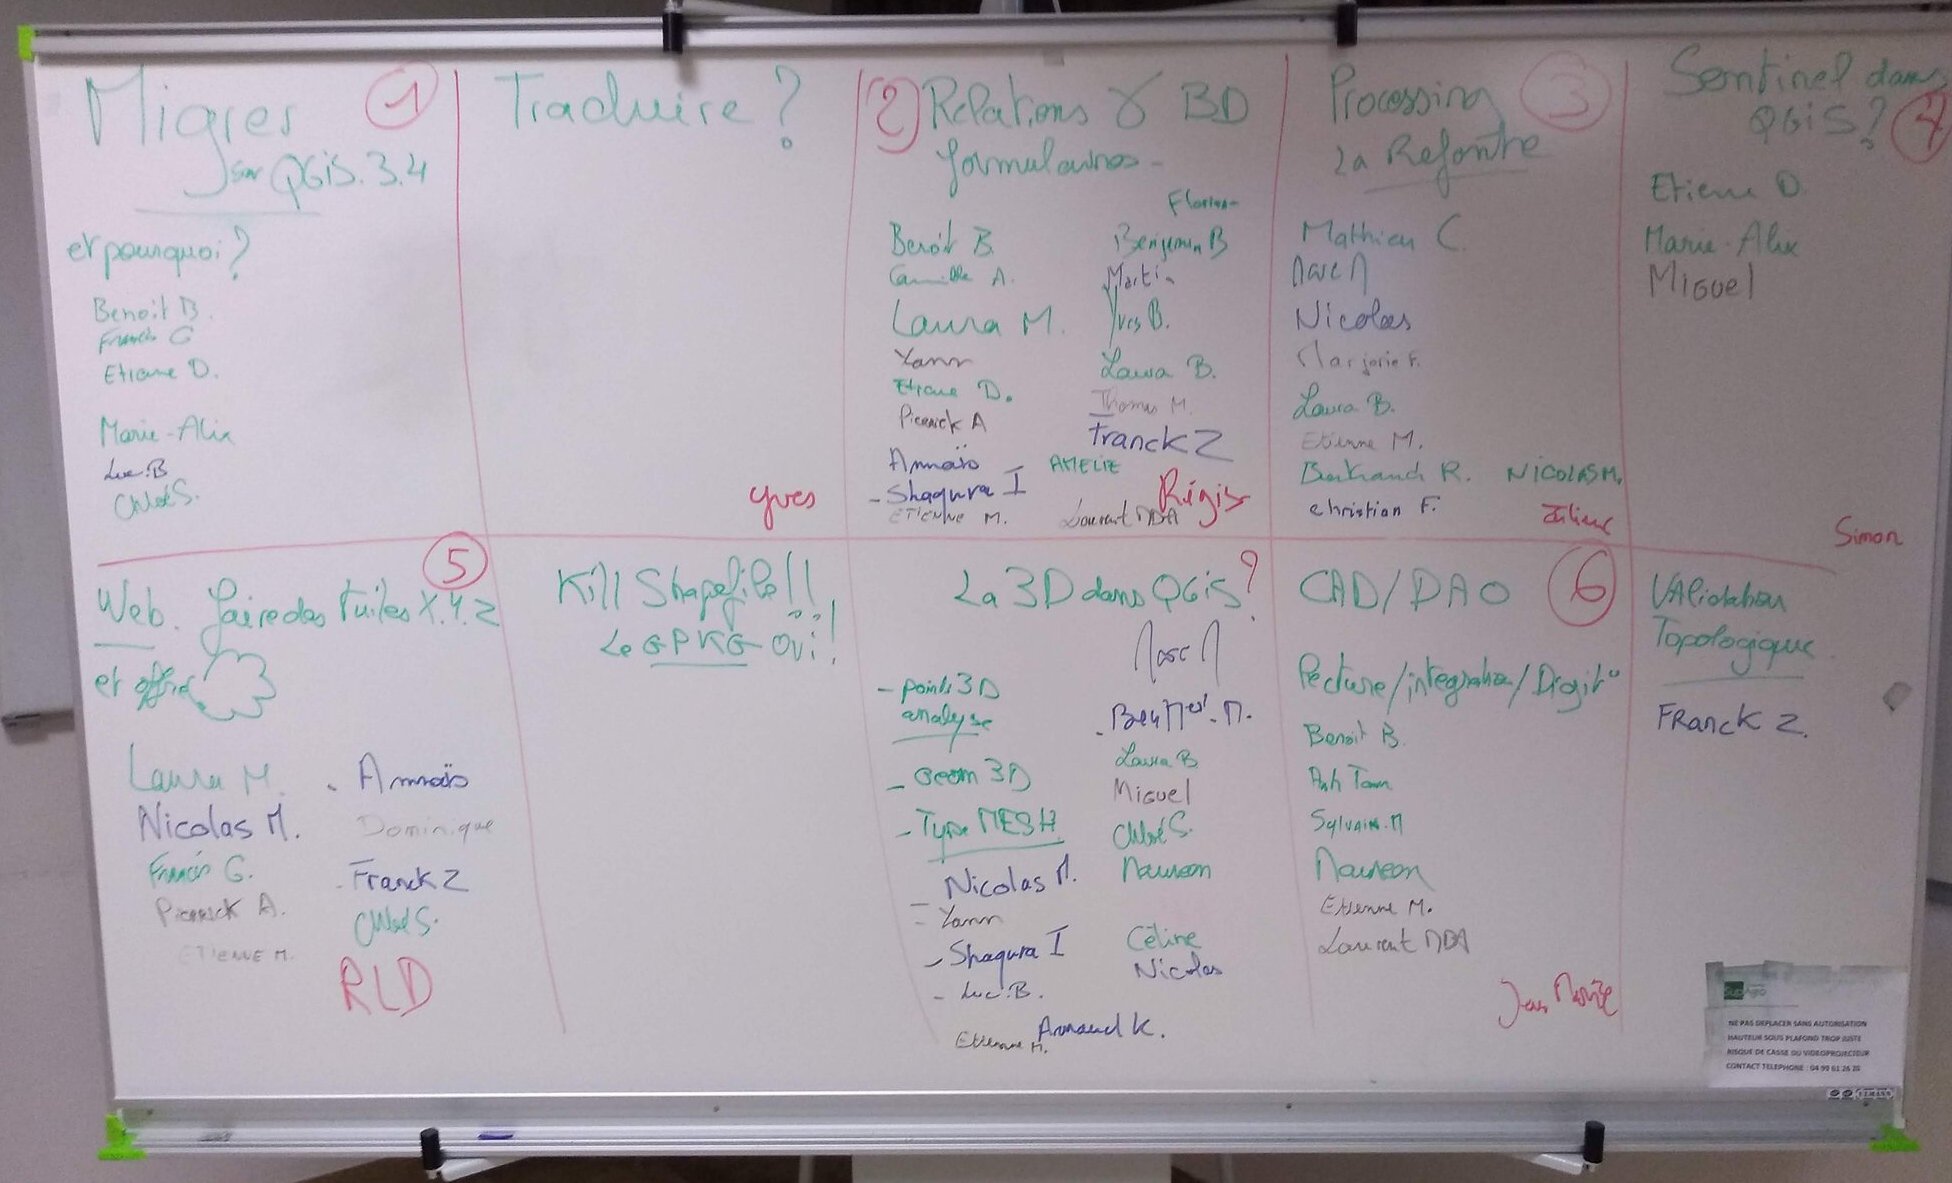 Migrer 1
sur QGIS.3.4
et pourquoi?
Benoit B.
Francis G
Etienne D.
Marie-Alix
Luc.B
Chloé S.
Traduire?
Yves
2 Relations & BD
formulaires -
Florian
Benoit B.
Camille A.
Laura M.
Yann
Etienne D.
Pierrick A
Annaïs
- Shaqura I
ETIENNE M.
Benjamin B
Martin
Yves B.
Laura B.
Thomas M.
Franck Z
AMELIE
Régis
Laurent MDA
Processing 3
La Refonte
Mathieu C.
Marc M
Nicolas
Marjorie F.
Laura B.
Etienne M.
Bertrand R. NICOLAS M.
Christian F.
Julien
Sentinel dans
QGIS? 4
Etienne D.
Marie-Alix
Miguel
Simon
5
Web. faire des tuiles X.Y.Z
et
Laura M.
Nicolas M.
Francis G.
Pierrick A.
ETIENNE M.
- Annaïs
Dominique
- Franck Z
Chloé S.
RLD
Kill Shapefile!!
Le GPKG Oui!
La 3D dans QGIS?
- points 3D
analyse
- Geom 3D
- Type MESH
Nicolas M.
- Yann
- Shaqura I
- Luc.B.
Etienne M.
Marc M
Laura B
Miguel
Chloé S.
Maureen
Céline
Nicolas
Armand K.
CAD/DAO 6
Lecture/intégration/Digit°
Benoit B.
Anh Tam
Sylvain.M
Maureen
Etienne M.
Laurent MDA
Validation
Topologique
FRancK Z.
SupAgro
NE PAS DEPLACER SANS AUTORISATION
HAUTEUR SOUS PLAFOND TROP JUSTE
RISQUE DE CASSE DU VIDEOPROJECTEUR
CONTACT TELEPHONE : 04 99 61 26 28